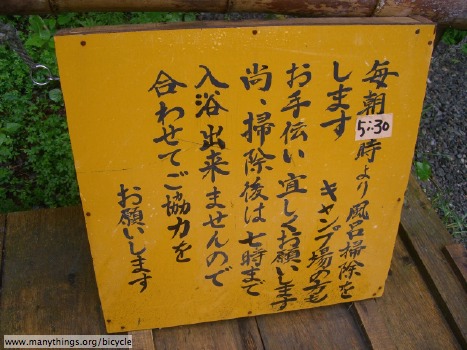 毎朝5:30時より風呂掃除を
します キャンプ場の方も
お手伝い宜しくお願いします
尚、掃除後は七時まで
入浴出来ませんので
合わせてご協力を
お願いします
www.manythings.org/bicycle